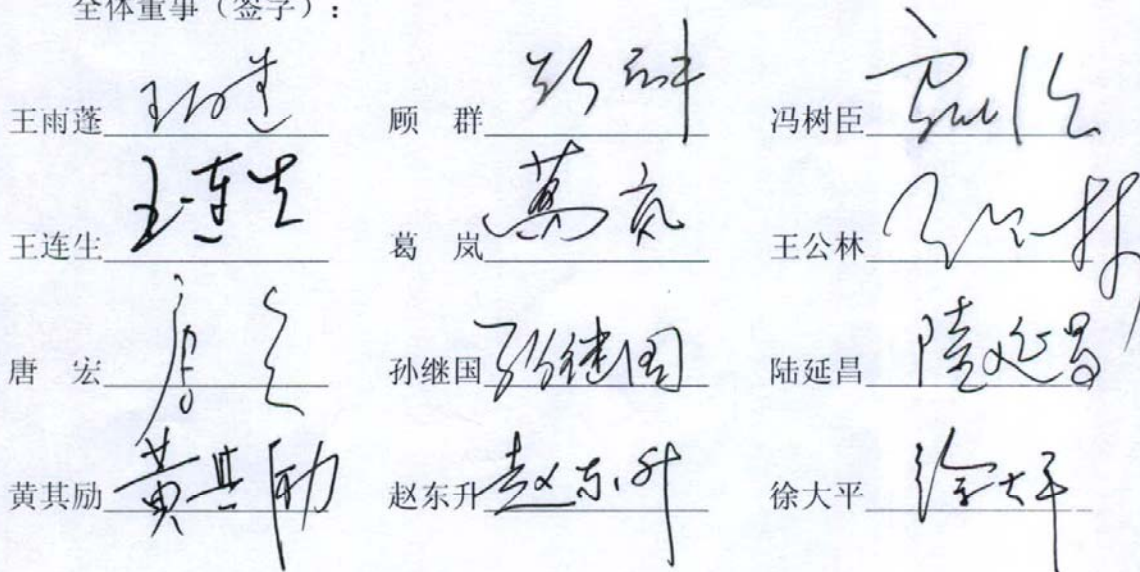 全体董事（签字）：
王雨蓬 顾 群 冯树臣
王连生 王连生 葛 岚 葛岚 王公林
唐 宏 孙继国 孙继国 陆延昌 陆延昌
黄其励 黄其励 赵东升 赵东升 徐大平 徐大平